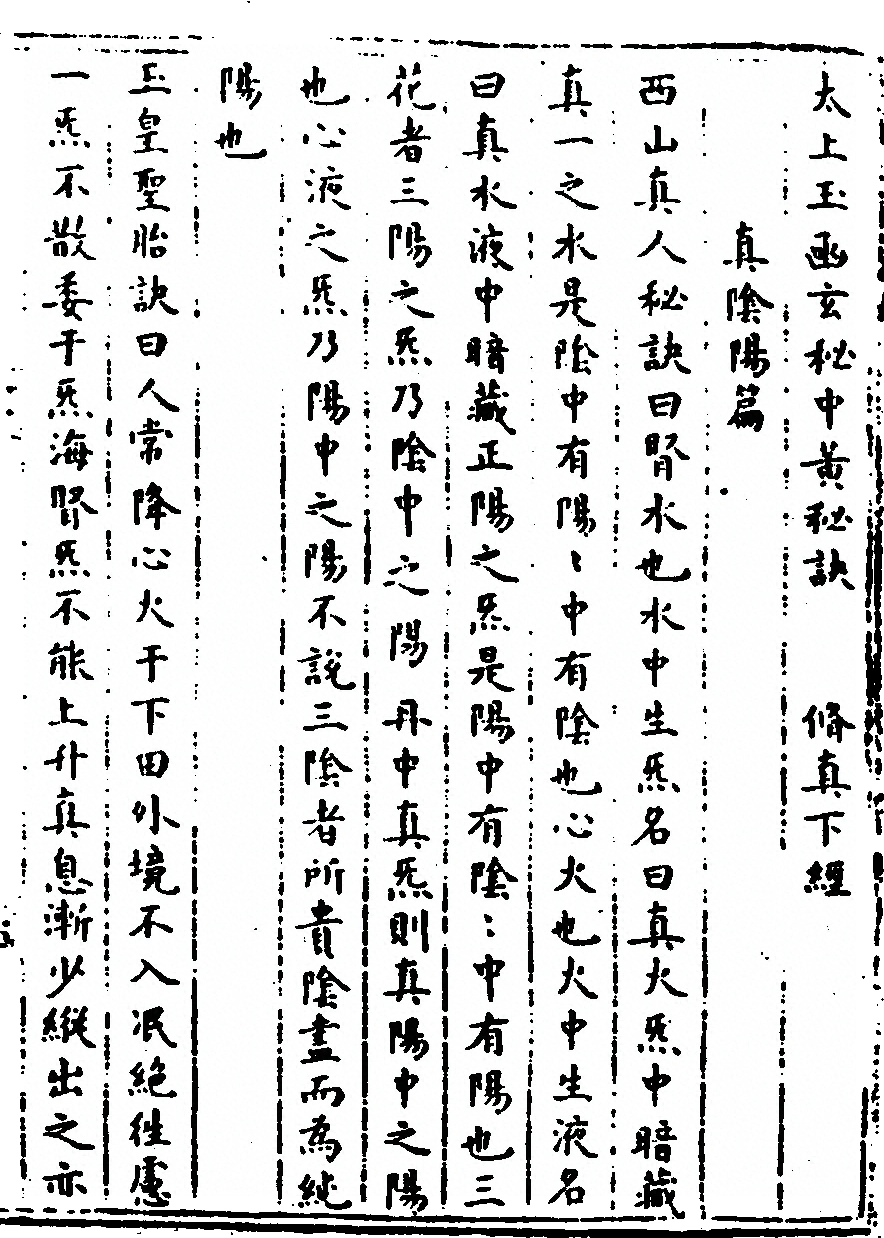 太上玉函玄秘中黃秘訣　脩真下經
真陰陽篇
西山真人秘訣曰腎水也水中生炁名曰真火炁中暗藏
真一之水是陰中有陽〻中有陰也心火也火中生液名
曰真水液中暗藏正陽之炁是陽中有陰〻中有陽也三
花者三陽之炁乃陰中之陽丹中真炁則真陽中之陽
也心液之炁乃陽中之陽不說三陰者所貴陰盡而為純
陽也
玉皇聖胎訣曰人常降心火于下田外境不入泯絕徃慮
一炁不散委于炁海腎炁不能上升真息漸少縱出之亦